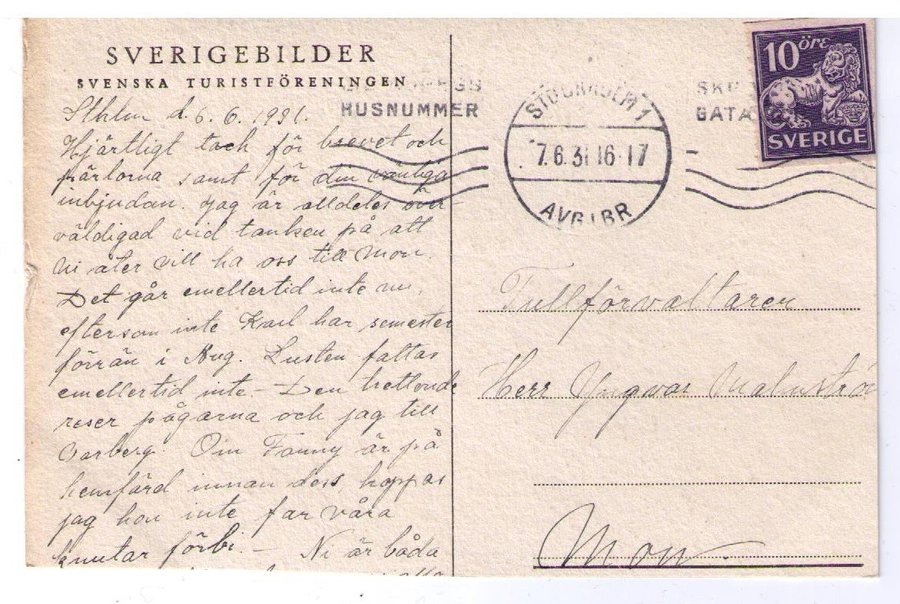 SVERIGEBILDER
SVENSKA TURISTFÖRENINGEN
Sthlm d. 6. 6. 1931.
Hjärtligt tack för brevet och
pärlorna samt för din vänliga
inbjudan. Jag är alldeles över
väldigad vid tanken på att
Ni åter vill ha oss till Mon.
Det går emellertid inte nu,
eftersom inte Karl har semester
förrän i Aug. Lusten fattas
emellertid inte – Den trettonde
reser pågarna och jag till
Varberg. Om Fanny är på
hemfärd innan dess, hoppas
jag hon inte far våra
knutar förbi. – Ni är båda
HUSNUMMER
STOCKHOLM 1
7.6.31 16-17
AVG. BR
GATA
10 öre
SVERIGE
Tullförvaltaren
Herr Yngvar Malmström
Mon